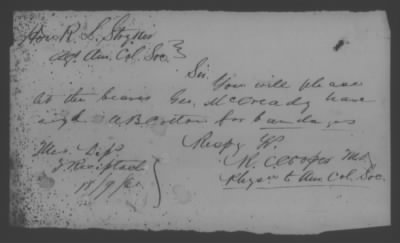 Hon R. L. Stryker
Agt Am. Col. Soc.
Sir
You will please
let the bearer Geo. McCready have
eight A.B. Cotton for bandages
Respy Yr.
R. Cooper MD
Physn to Am Col. Soc.
Mes. Dept